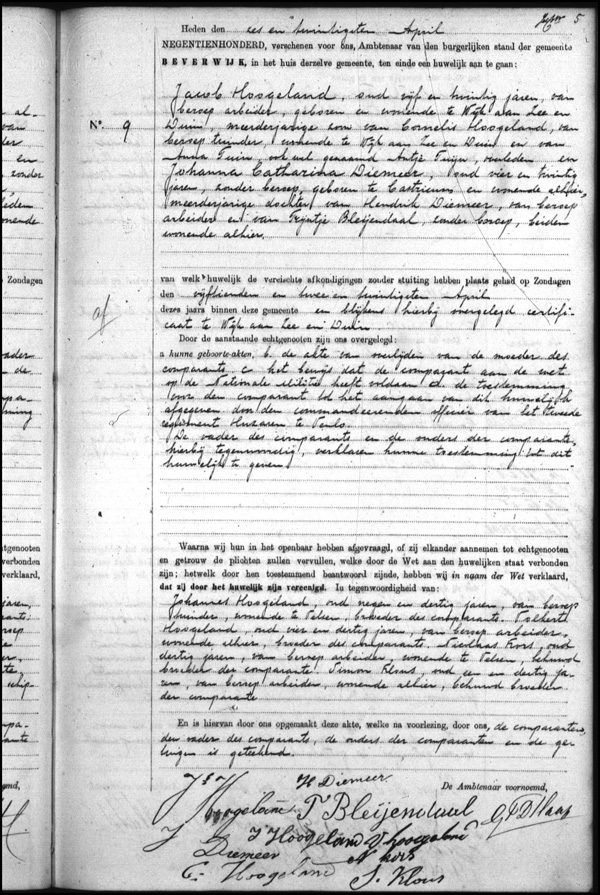 5
Heden den een en twintigsten April
NEGENTIENHONDERD, verschenen voor ons, Ambtenaar van den burgerlijken stand der gemeente
BEVERWIJK, in het huis derzelve gemeente, ten einde een huwelijk aan te gaan:
Jacob Hoogeland, oud vijf en twintig jaren, van
beroep arbeider, geboren en wonende te Wijk aan Zee en
Duin, meerderjarige zoon van Cornelis Hoogeland, van
beroep tuinder, wonende te Wijk aan Zee en Duin en van
Anna Tuin, ook wel genaamd Antje Tuijn, overleden en
No. 9
Johanna Catharina Diemeer, oud vier en twintig
jaren, zonder beroep, geboren te Castricum en wonende alhier,
meerderjarige dochter van Hendrik Diemeer, van beroep
arbeider en van Trijntje Bleijendaal, zonder beroep, beiden
wonende alhier.
van welk huwelijk de vereischte afkondigingen zonder stuiting hebben plaats gehad op Zondagen
den vijftienden en twee en twintigsten April
dezes jaars binnen deze gemeente en blijkens hierbij overgelegd certifi-
caat te Wijk aan Zee en Duin
Door de aanstaande echtgenooten zijn ons overgelegd:
a hunne geboorte-akten, b. de akte van overlijden van de moeder des
comparants, c. het bewijs dat de comparant aan de wet
op de Nationale Militie heeft voldaan d. de toestemming
voor den comparant tot het aangaan van dit huwelijk
afgegeven door den commandeerenden officier van het tweede
regiment Huzaren te Venlo.
De vader des comparants en de ouders der comparante,
hierbij tegenwoordig, verklaren hunne toestemming tot dit
huwelijk te geven
Waarna wij hun in het openbaar hebben afgevraagd, of zij elkander aannemen tot echtgenooten
en getrouw de plichten zullen vervullen, welke door de Wet aan den huwelijken staat verbonden
zijn; hetwelk door hen toestemmend beantwoord zijnde, hebben wij in naam der Wet verklaard,
dat zij door het huwelijk zijn vereenigd. In tegenwoordigheid van:
Johannes Hoogeland, oud negen en dertig jaren, van beroep
tuinder, wonende te Velsen, broeder des comparants.
Hoogeland, oud vier en dertig jaren, van beroep arbeider,
wonende alhier, broeder des comparants. Nicolaas Kors, oud
dertig jaren, van beroep arbeider, wonende te Velsen, behuwd
broeder der comparante. Simon Klous, oud een en dertig ja-
ren, van beroep arbeider, wonende alhier, behuwd broeder
der comparante
En is hiervan door ons opgemaakt deze akte, welke na voorlezing, door ons, de comparanten,
den vader des comparants, de ouders der comparante en de ge-
tuigen is geteekend.
De Ambtenaar voornoemd,
H Diemeer
J Hoogeland
T Bleijendaal
J Hoogeland
Hoogeland
J Diemeer
N kors
C. Hoogeland
S. Klous